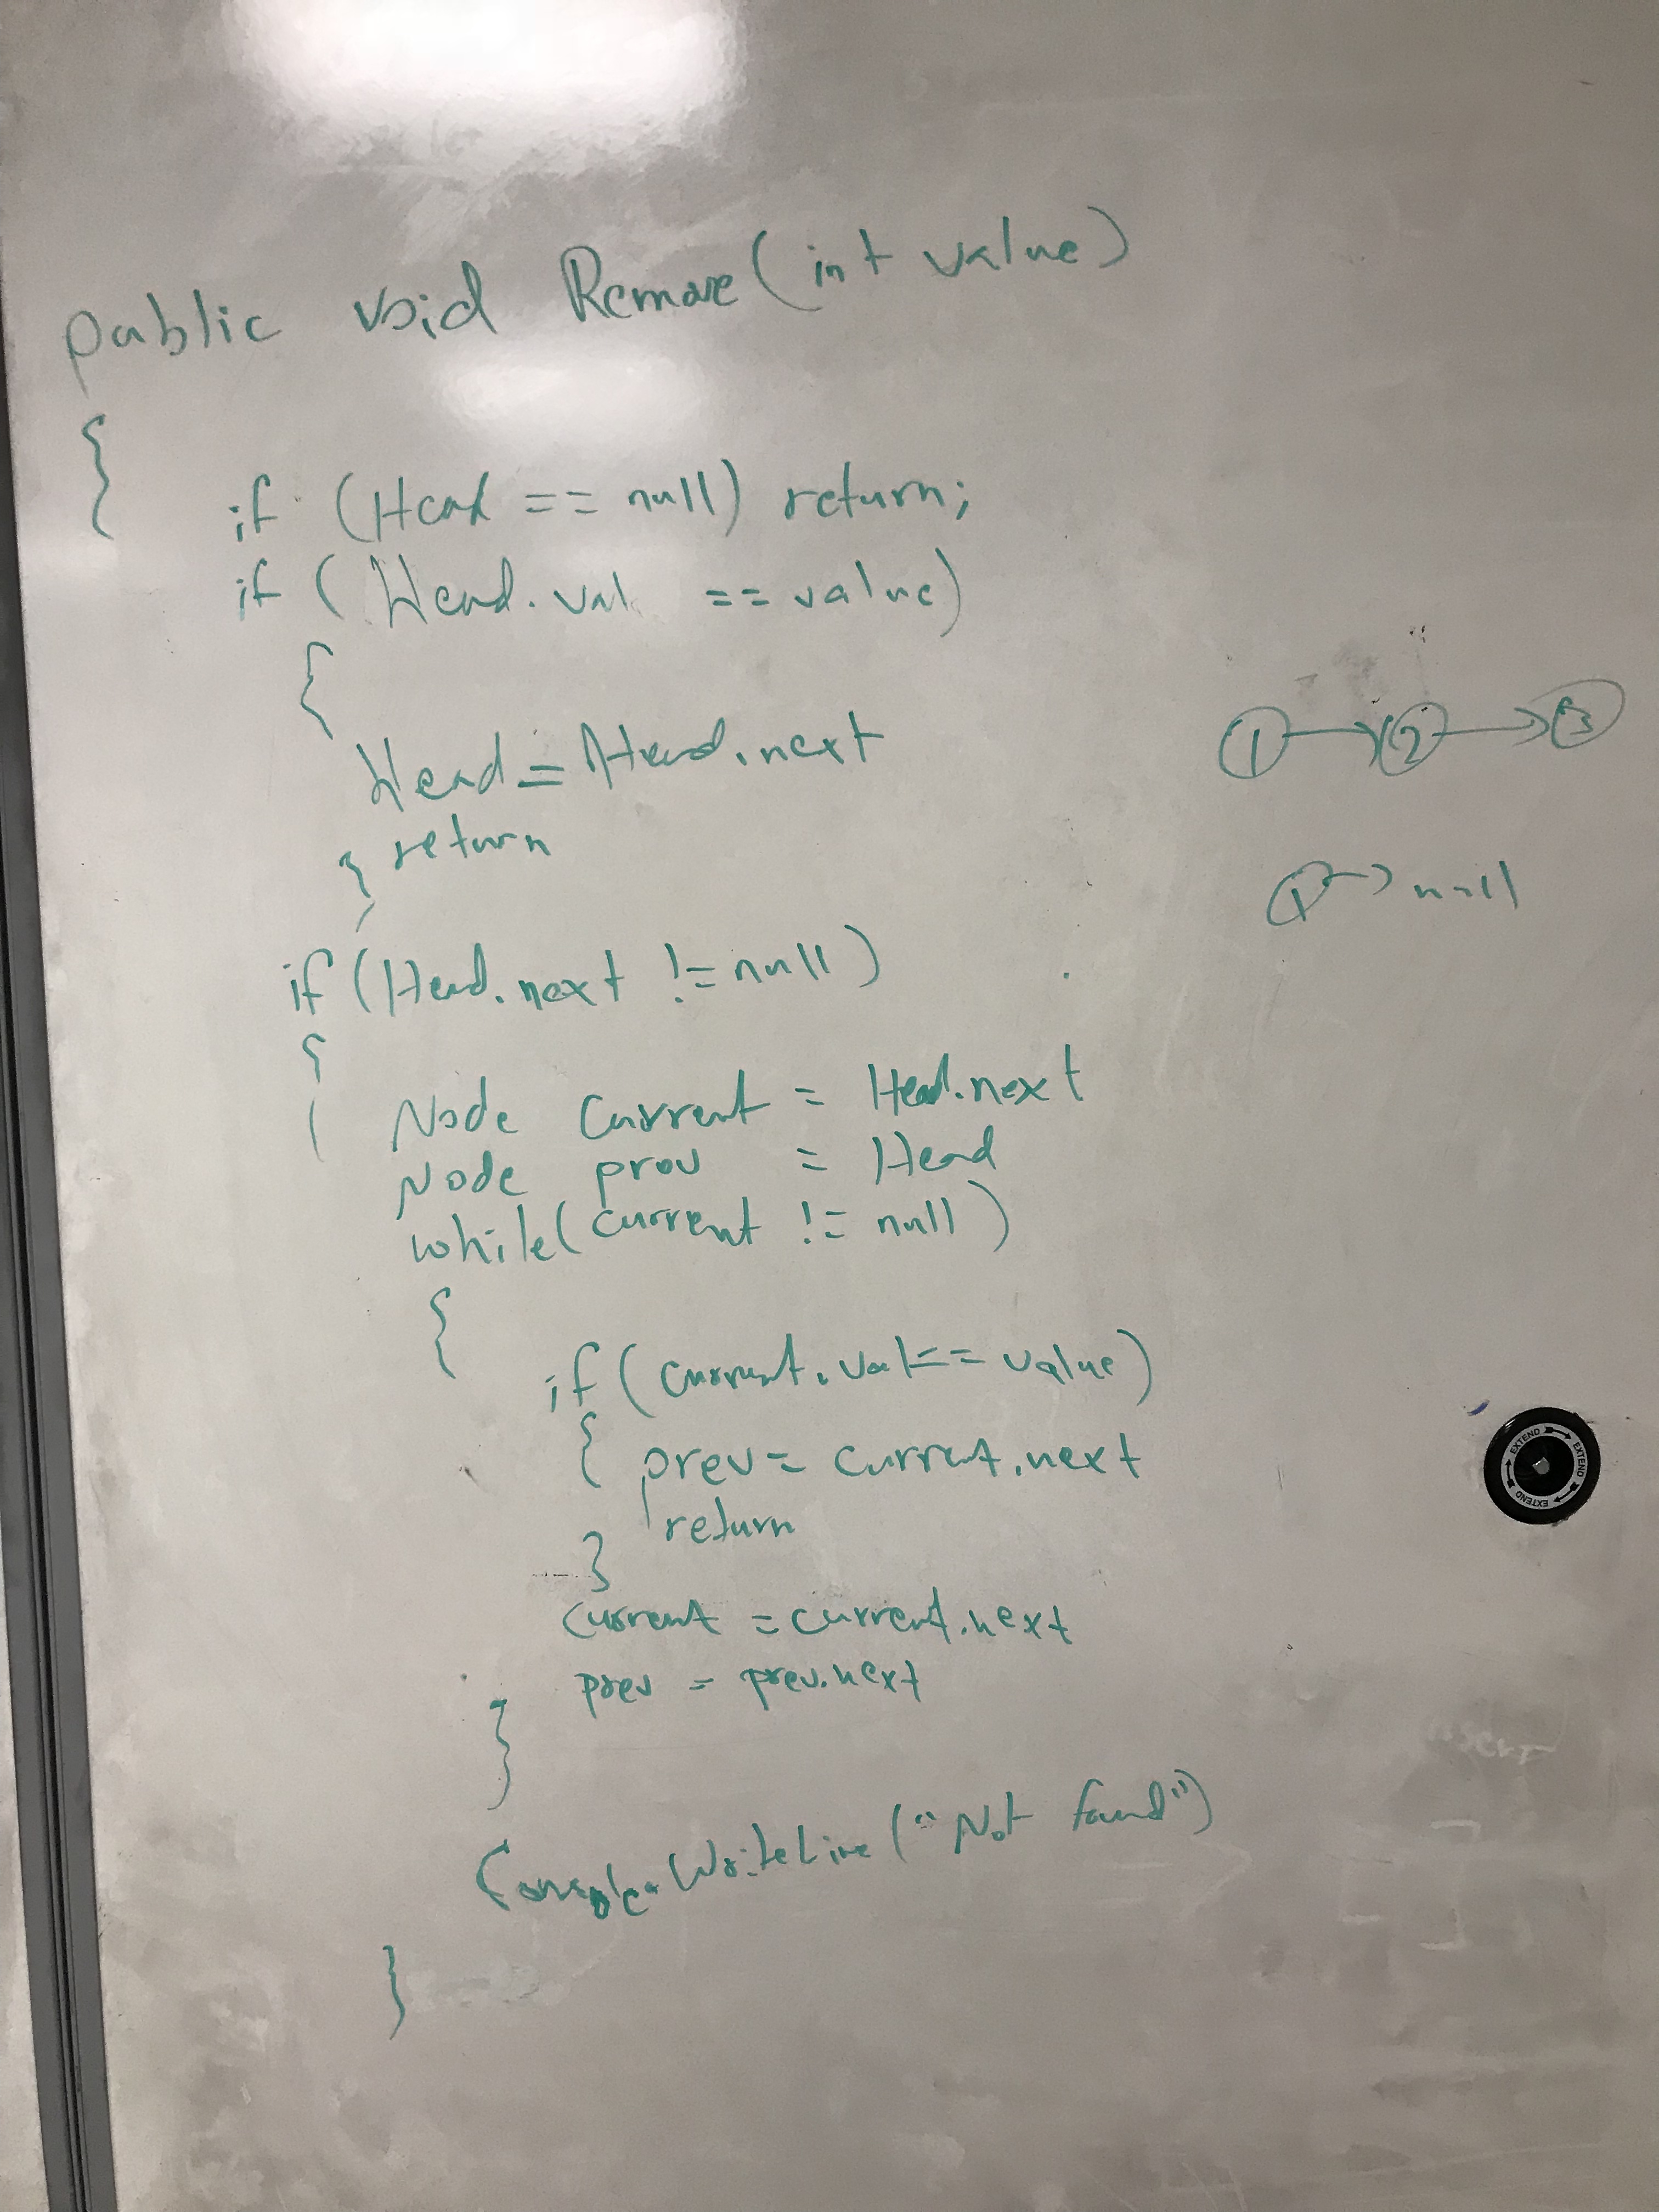 public void Remove(int value)
{
if (Head == null) return;
if (Head.val == value)
{
Head = Head.next
return
}
if (Head.next != null)
{
Node current = Head.next
Node prev = Head
while(current != null)
{
if (current.val == value)
{ prev = current.next
return
}
current = current.next
prev = prev.next
}
Console.WriteLine("Not found")
}
1 → 2 → 3
1 → null
EXTEND EXTEND EXTEND EXTEND